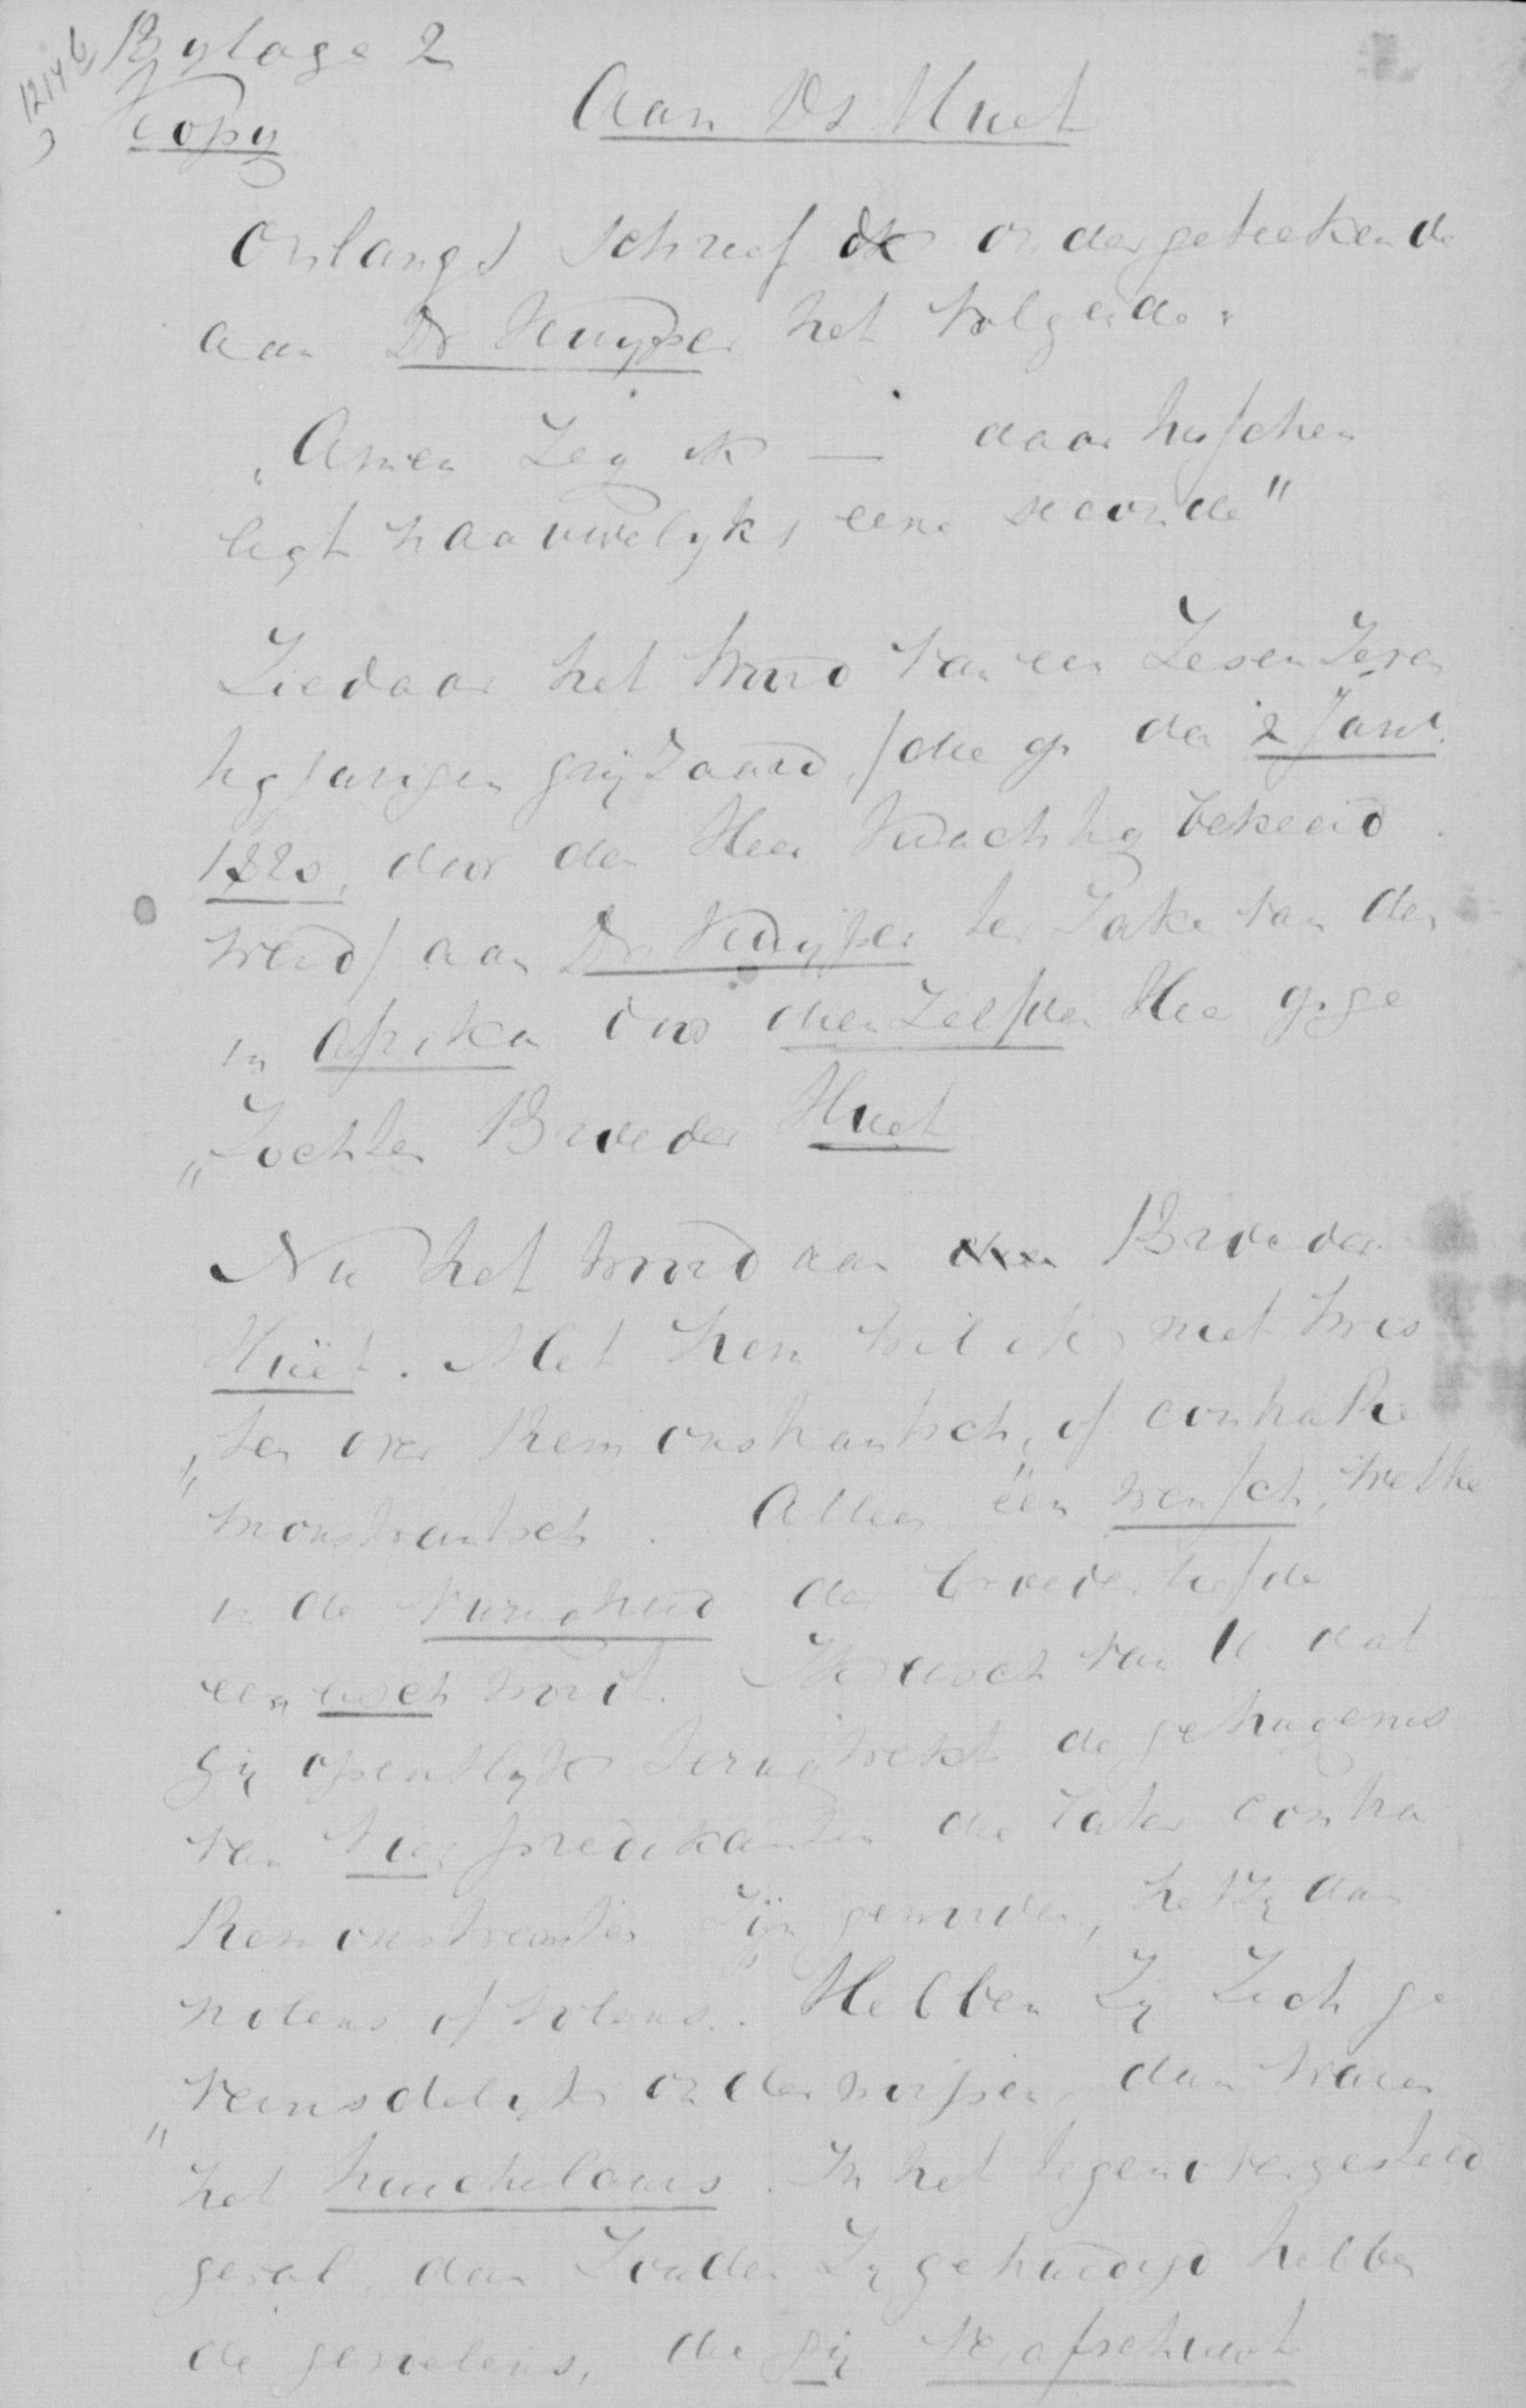 12146
Bylage 2
Copy
Aan Ds Huet
Onlangs schreef ik ondergeteekende
aan Dr Kuyper het volgende:
„Amen Zeg ik — daar tusschen
ligt naauwelyks eene seconde"
Ziedaar het woord van een Zesenzeven
tigjarigen grijzaard, /die op den 2 Janr.
1820, door den Heer krachtig bekeerd
werd/ aan Dr. Kuyper ter Zake van den
in Afrika door dienzelfden Heer opge
„Zochten Broeder Huet
Nu het woord aan Broeder
Huët. Met hem wil ik niet twis
„ten over Remonstrantsch, of contra Re
„monstrantsch. Alleen één wensch, welke
in de vurigheid der broederliefde
een eisch word. Ik eisch van U dat
gij openlyk terugtrekt de getuigenis
van vier predikanten die later contra
Remonstranten zijn geworden, hetzy dan
nolens of volens. Hebben Zy Zich ge
„veinsdelyk onderworpen, dan waren
het huichelaars. In het tegenovergesteld
geval, dan Zouden Zy gehuldigd hebben
de gevoelens, die gij verafschuwt